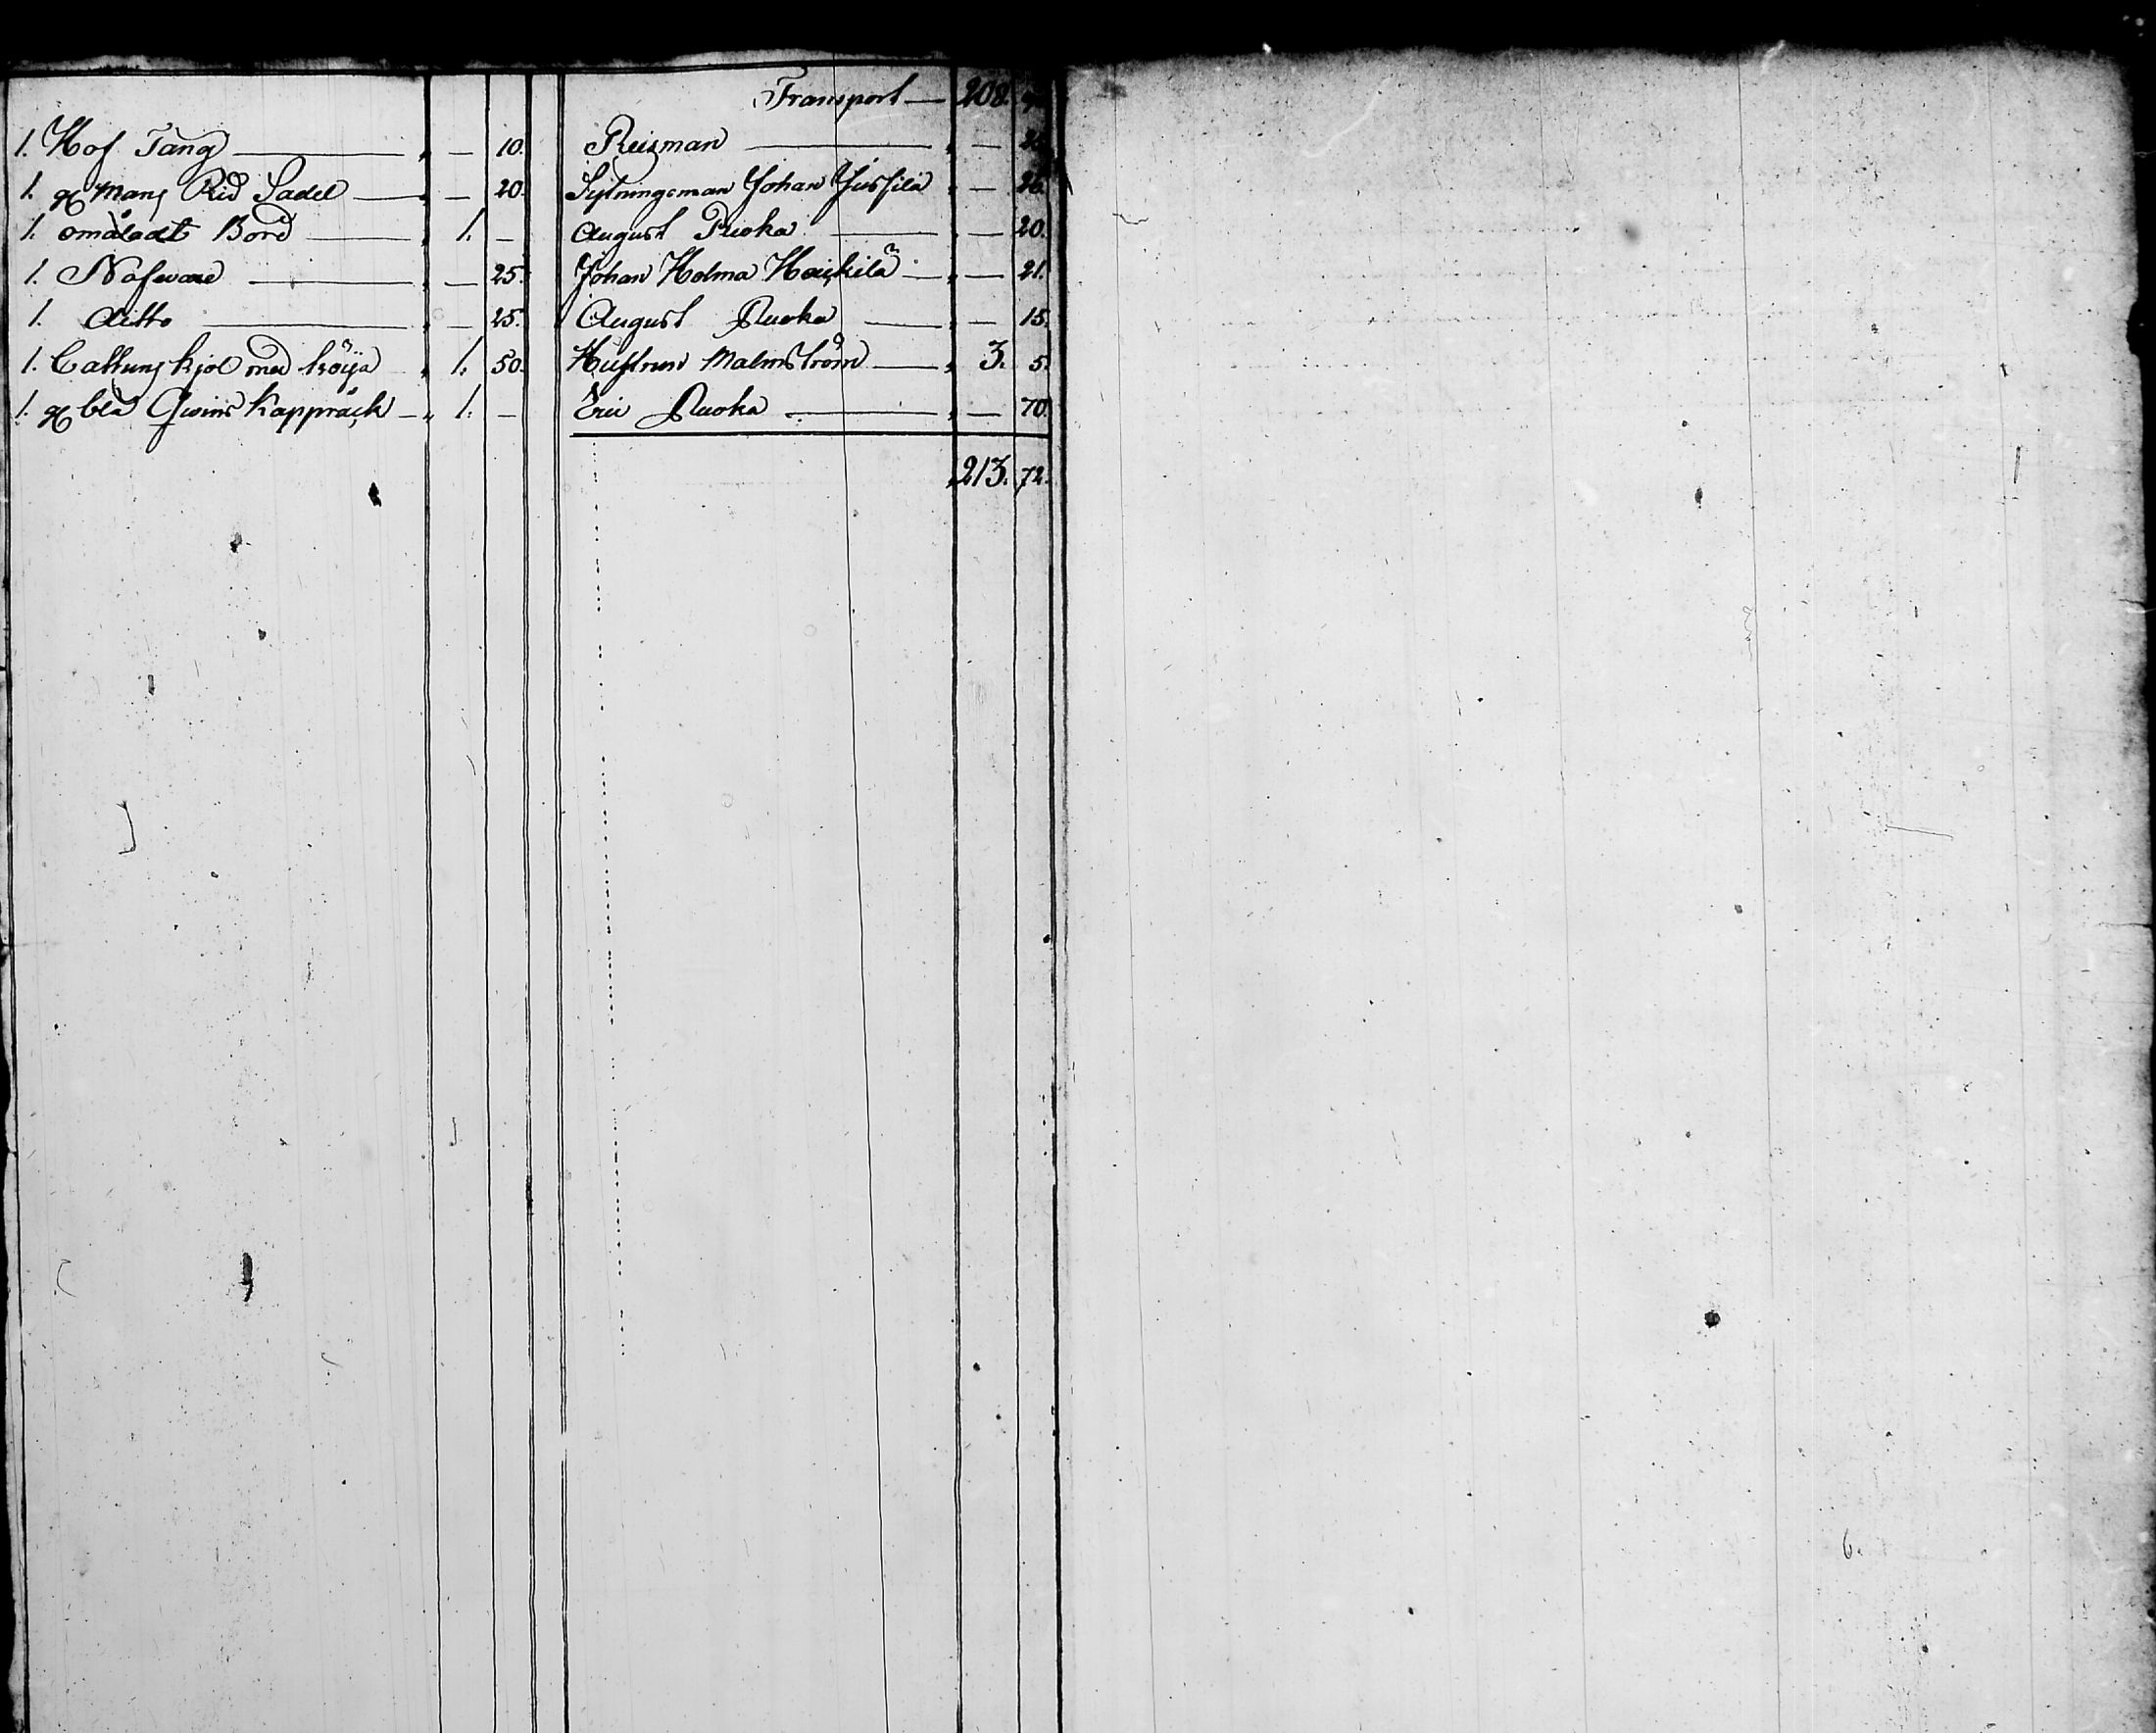 Transport — 208.
1. Hof Tång — " — 10. Reisman — " —
1. gl Mans Rid Sadel — " — 20. Sytningsman Johan Jussila " — 26.
1. omåladt Bord — " 1. — August Ruoka — " — 20.
1. Nafware — " — 25. Johan Holma Haikilä — " — 21.
1. ditto — " — 25. August Ruoka — " — 15.
1. Cattuns kjol med tröija " 1. 50. Hustrun Malmström — " 3. 5.
1. gl blå Qwins Kappräck — " 1. — Eric Ruoka — " — 70.
213. 72.
6.